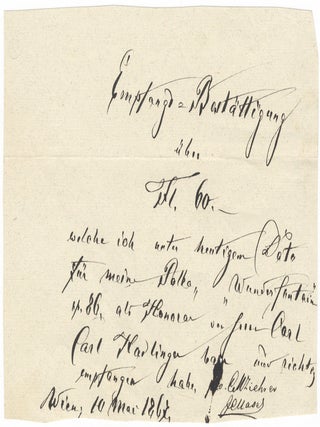 Empfangs=Bestättigung
über
Fl. 60.–
welche ich unter heutigem Dato
für meine Polka
op. 86, als Honorar von Herrn Carl
Carl Haslinger baar und richtig
empfangen habe.
Wien, 10 Mai 186